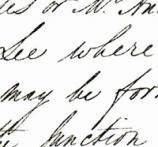 or Mr. An
Lee where
may be for
Junction